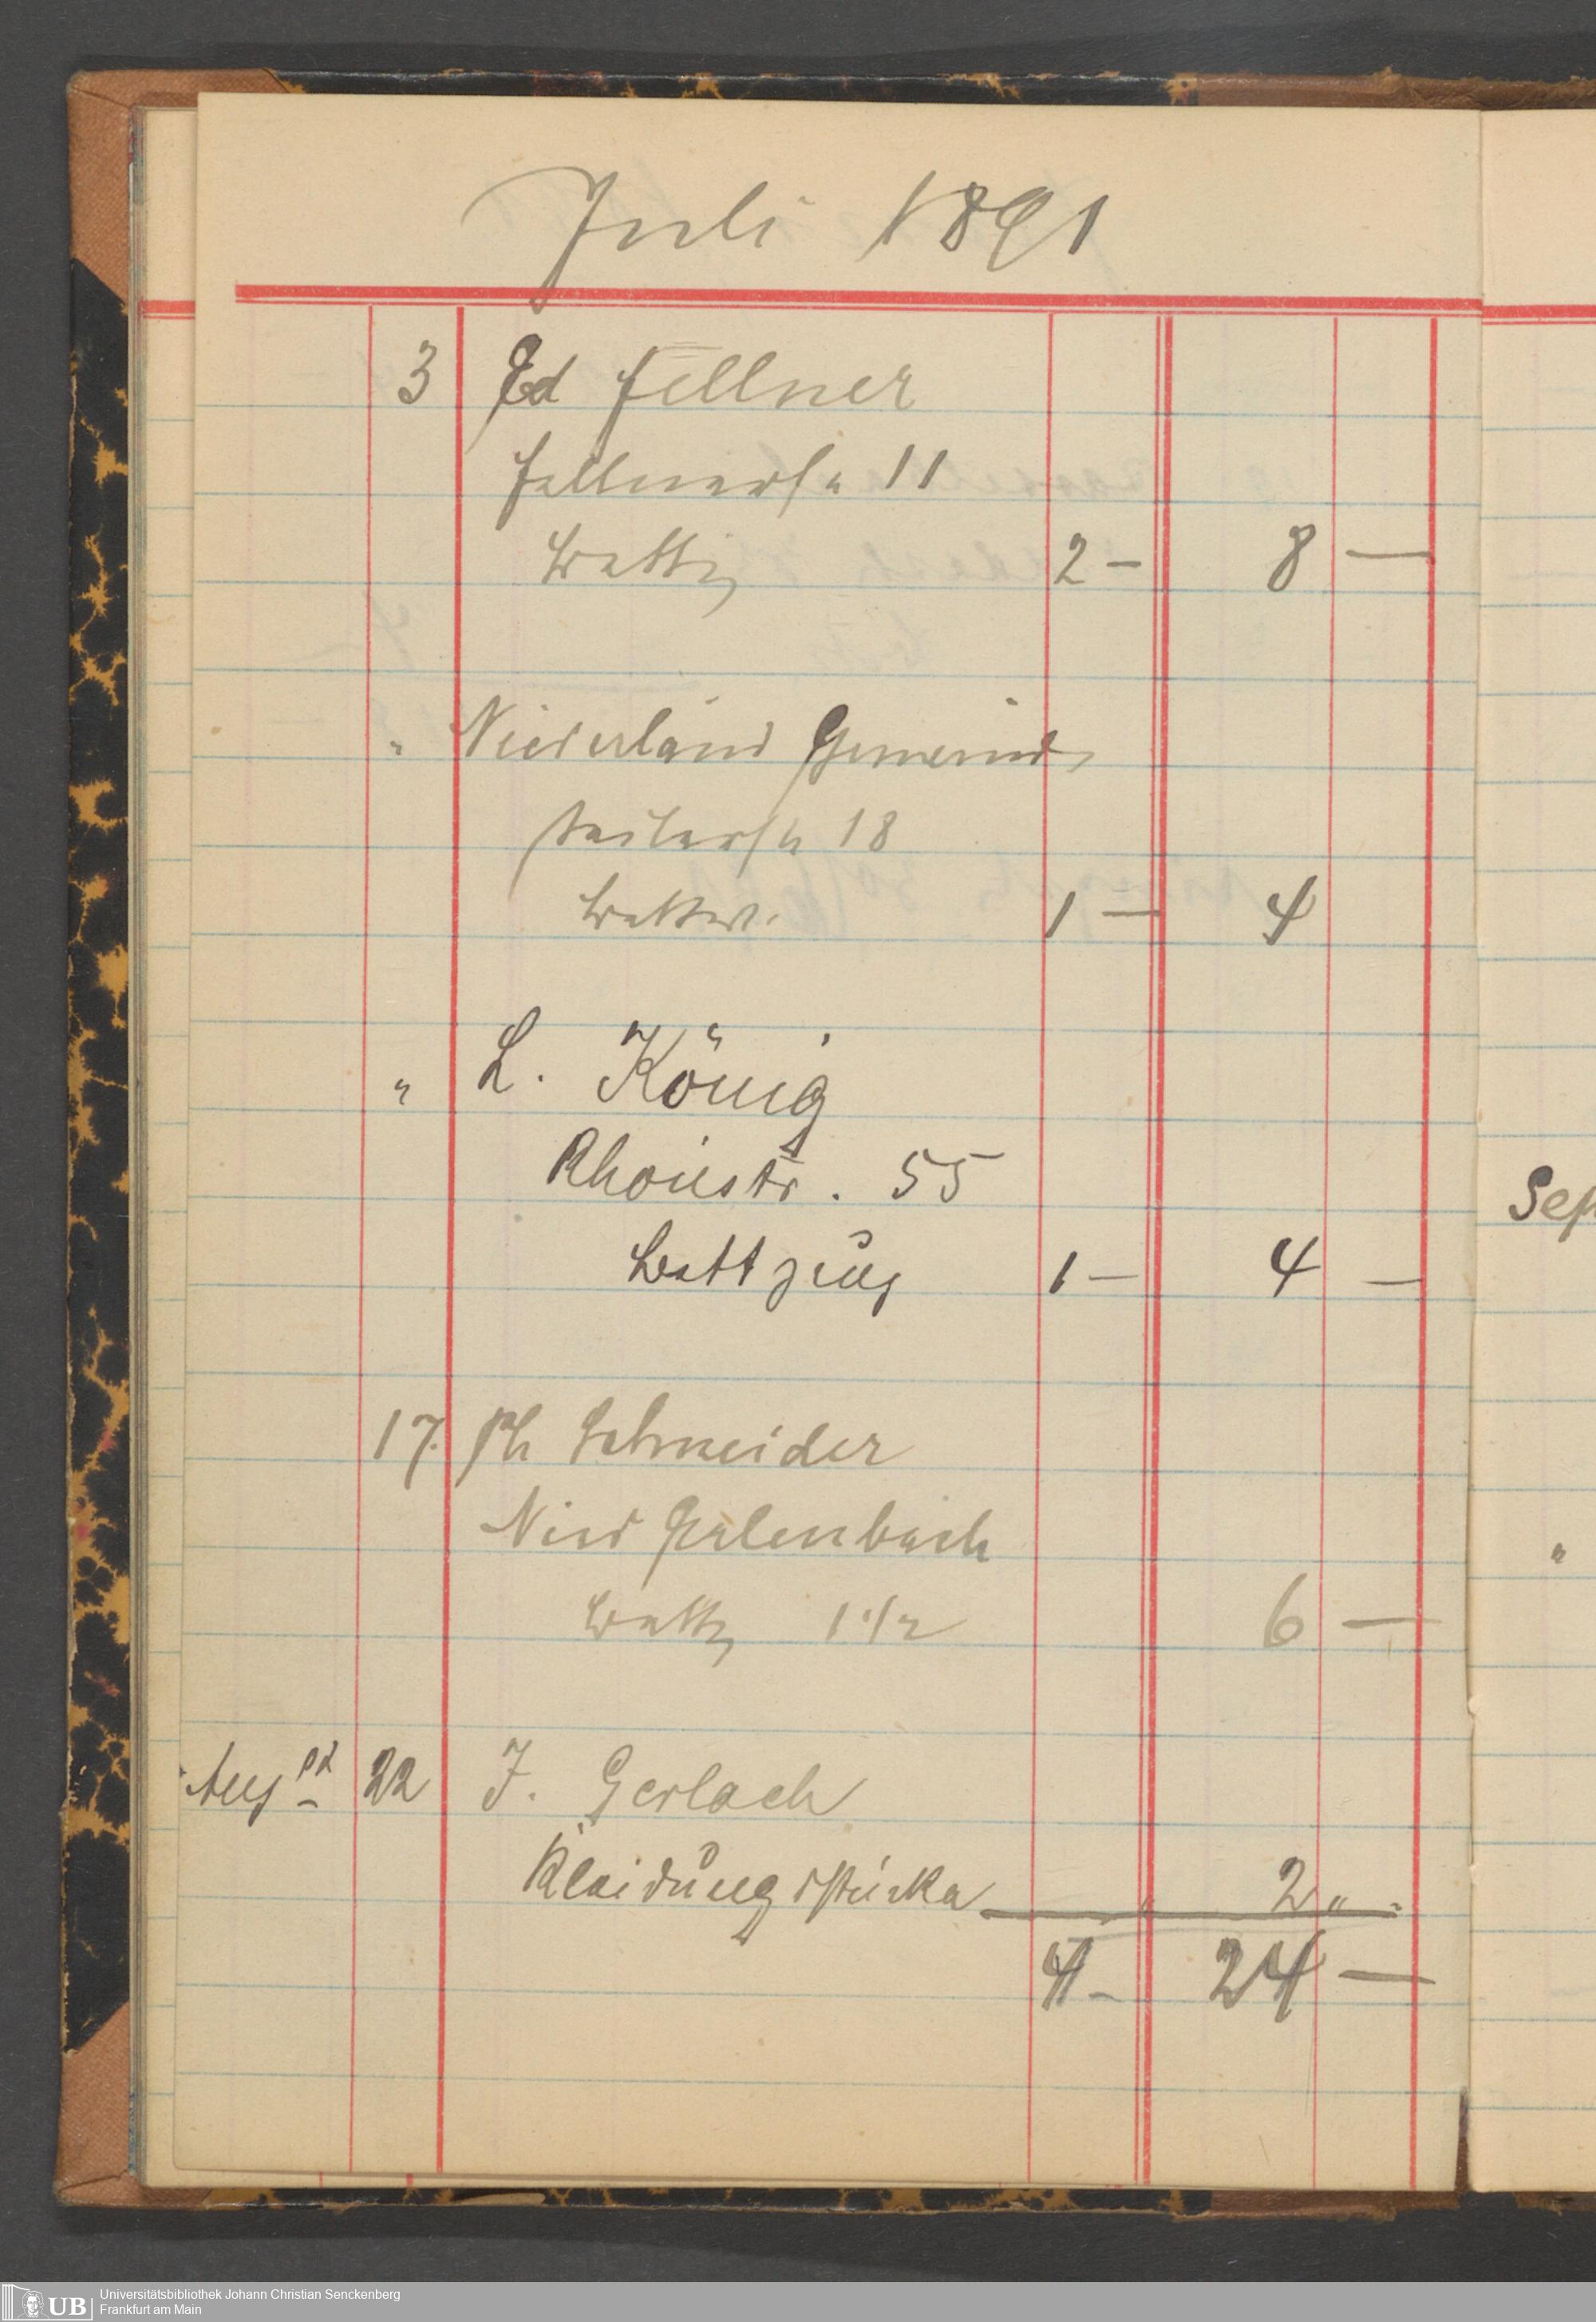 Juli 1891
3 Ed Fellner
Fellnerstr 11
Bettz 2 — 8 —
" Niederländ Gemeinde
Seilerstr 18
Bettw. 1 — 4
" L. König
Rhönstr. 55
Bettzeug 1 — 4 —
17. Ph Schneider
Nied Erlenbach
Bettz 1 1/2 6 —
Aug 22 J. Gerlach
Kleidungsstücke " 2 " -
4 - 24 —
Sep
"
Universitätsbibliothek Johann Christian Senckenberg
UB Frankfurt am Main